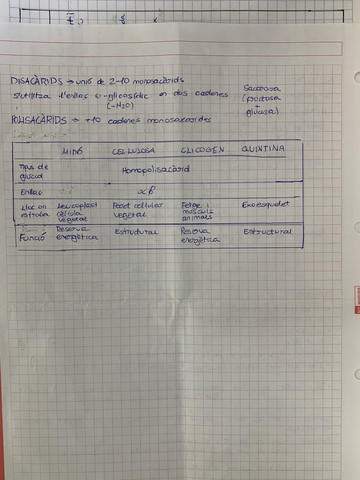 DISACÀRIDS → unió de 2-10 monosacàrids
S'utilitza l'enllaç o-glicosídic en dos cadenes
(-H₂O)
Sacarosa
(fructosa
+
glucosa)
POLISACÀRIDS → +10 cadenes monosacàrides
MIDÓ CEL·LULOSA GLICOGEN QUINTINA
Tipus de
glúcid
Homopolisacàrid
Enllaç αβ
Lloc on
estroba
Leucoplast
cèl·lula
vegetal
Paret cel·lular
vegetal
Fetge i
músculs
animals
Exoesquelet
Funció
Reserva
energètica
Estructural
Reserva
energètica
Estructural